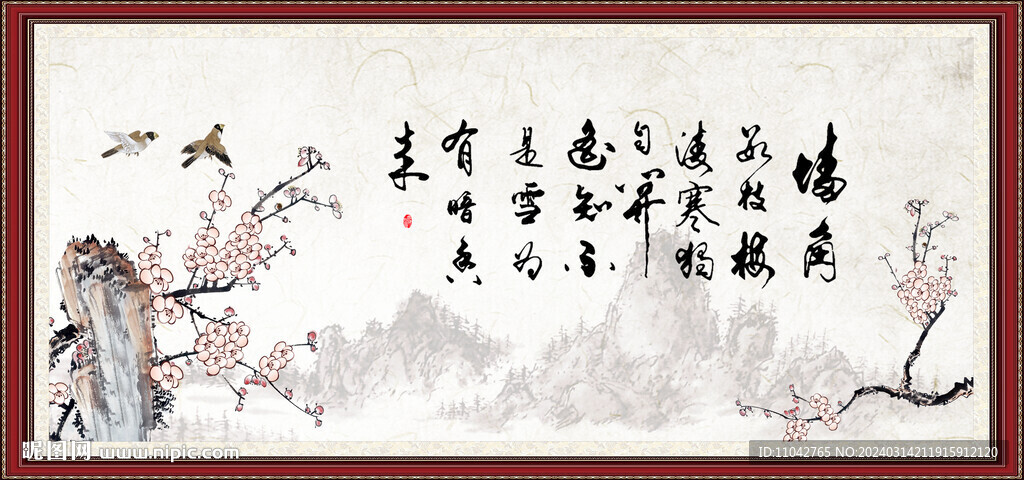 墙角
数枝梅
凌寒独
自开
遥知不
是雪为
有暗香
来
昵图网 www.nipic.com
ID:11042765 NO:20240314211915912120